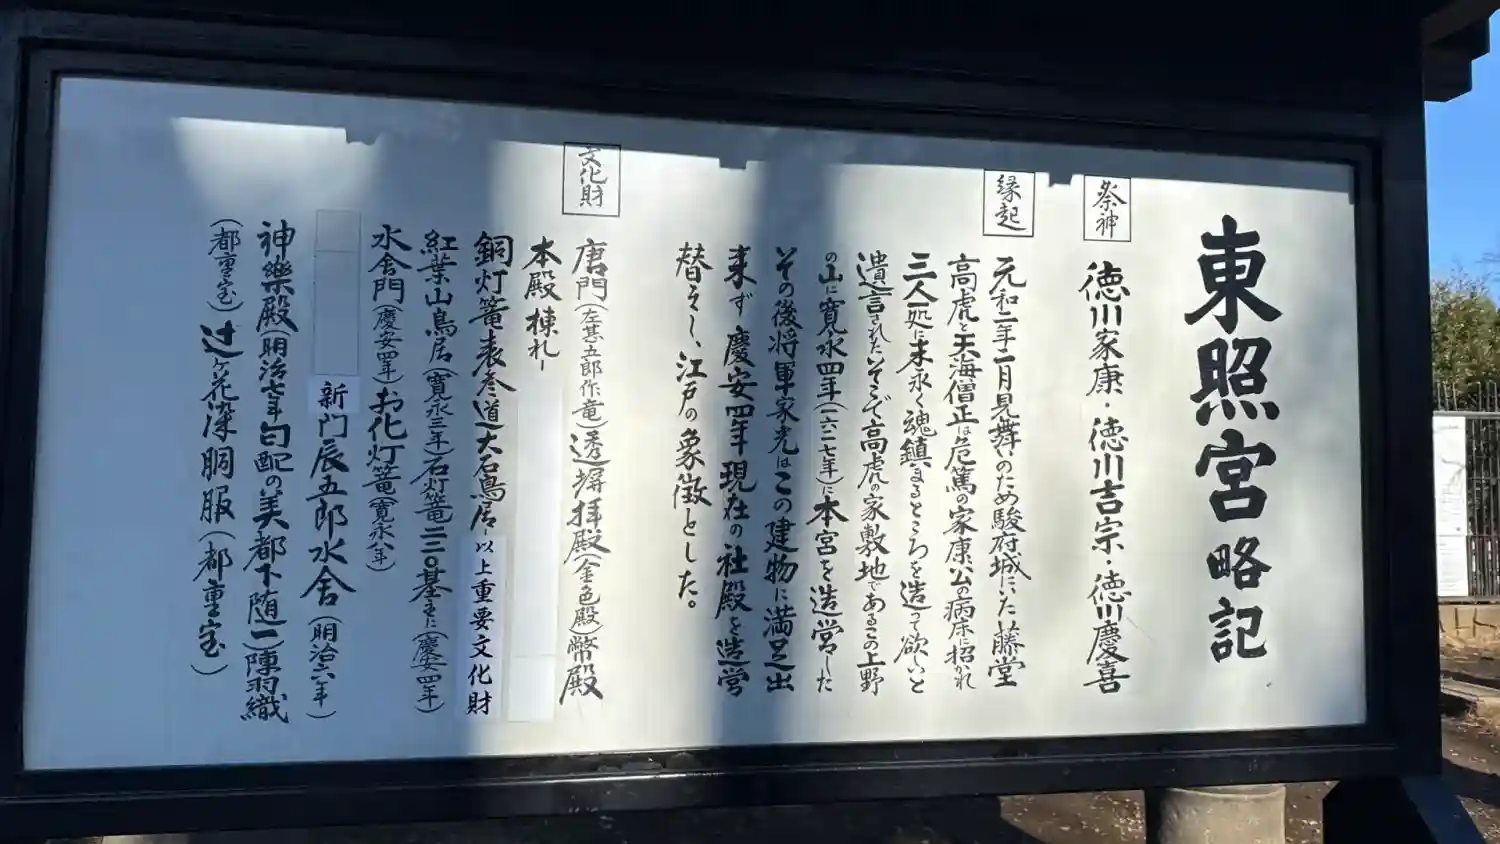 東照宮略記
祭神
徳川家康・徳川吉宗・徳川慶喜
縁起
元和二年二月見舞のため駿府城にいた藤堂
高虎と天海僧正は危篤の家康公の病床に招かれ
三人一処に末永く魂鎮まるところを造って欲しいと
遺言されたそこで高虎の家敷地であるこの上野
の山に寛永四年(一六二七年)に本宮を造営した
その後将軍家光はこの建物に満足出
来ず慶安四年現在の社殿を造営
替えし、江戸の象徴とした。
文化財
唐門(左甚五郎作竜)透塀拝殿(金色殿)幣殿
本殿棟札
銅灯篭表参道大石鳥居以上重要文化財
紅葉山鳥居(寛永三年)石灯篭二二〇基(慶安四年)
水舎門(慶安四年)お化灯篭(寛永八年)
新門辰五郎水舎(明治六年)
神樂殿(明治七年)匂配の美都下随一)陣羽織
(都重宝)辻ヶ花染胴服(都重宝)